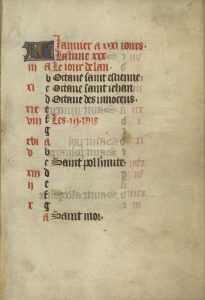 KL Janvier a xxxi iours.
La lune xxx.
iii A Le iour de lan.
b Octave saint estienne
xi c Octave saint iehan
d Octave des innocens.
xix e
viii f Les .iii. rois
g
xvi A
v b
c Saint pol
xiii d
ii e
f
x g
A Saint mor.